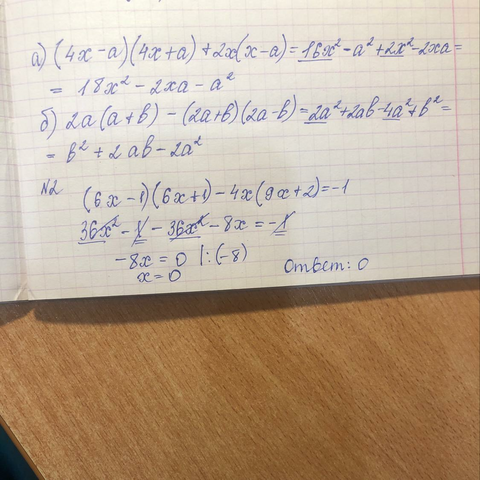 а) (4x-a)(4x+a)+2x(x-a)=16x²-a²+2x²-2xa=
= 18x²-2xa-a²
б) 2a(a+b)-(2a+b)(2a-b)=2a²+2ab-4a²+b²=
= b²+2ab-2a²
№2
(6x-1)(6x+1)-4x(9x+2)=-1
36x²-1-36x²-8x=-1
-8x=0 |:(-8)
x=0 Ответ: 0